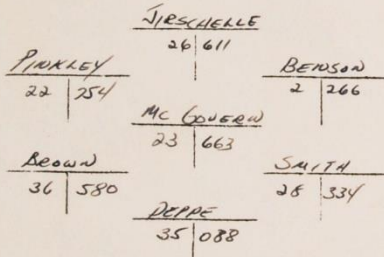 JIRSCHELLE
26 611
PINKLEY
22 254
BENSON
2 266
MC GOVERN
23 663
BROWN
36 580
SMITH
28 334
DEPPE
35 088